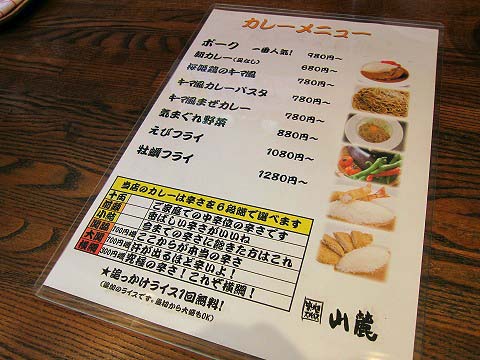 カレーメニュー
ポーク 一番人気! 980円〜
朝カレー(具なし) 680円〜
桜姫鶏のキマ風 780円〜
キーマ風カレーパスタ 780円〜
キーマ風まぜカレー 780円〜
気まぐれ野菜 880円〜
えびフライ 1080円〜
牡蠣フライ 1280円〜
当店のカレーは辛さを6段階で選べます
十両 ご家庭での中辛位の辛さです
前頭 香ばしい辛さがいいね
小結 今までの辛さに飽きた方はこれ
関脇 100円増 ここからが本当の辛さ
大関 200円増 汗が出るほど辛いよ!
横綱 300円増 究極の辛さ!これぞ横綱!
★追っかけライス1回無料!
(追加のライスです。最初から大盛もOK)
山麓